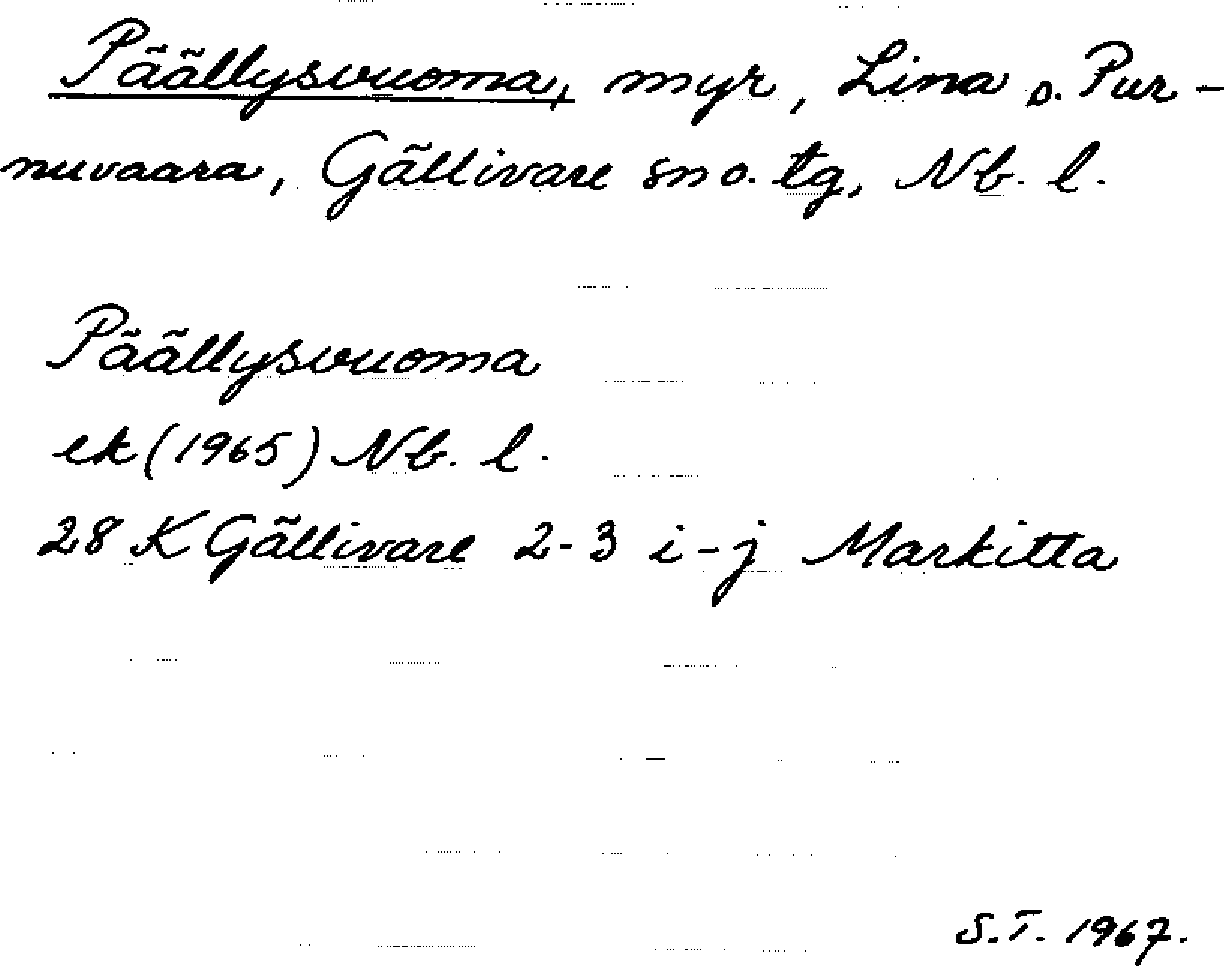 Päällysvuoma, myr, Lina o. Pur-
nuvaara, Gällivare sn o. tg, Nb. l.
Päällysvuoma
ek (1965) Nb. l.
28 K Gällivare 2-3 i-j Markitta
S.T. 1967.